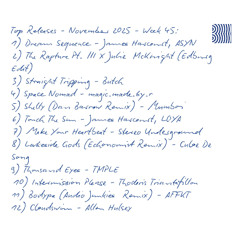 Top Releases - November 2025 - Week 45:
1) Dream Sequence - James Harcourt, ASYN
2) The Rapture Pt. III X Julie McKnight (Edburg
Edit)
3) Straight Tripping - Butch
4) Space Nomad - magic.made.by.r
5) Shelly (Dan Barrow Remix) - Mumbai
6) Touch The Sun - James Harcourt, LOYA
7) Make Your Heartbeat - Stereo Underground
8) Lakeside Gods (Echonomist Remix) - Cubac De
Song
9) Thousand Eyes - TMPLE
10) Intermission Please - Thodoris Triantafillou
11) Bodype (Audio Junkies Remix) - AFFKT
12) Cloudsurin - Allan Hulsey